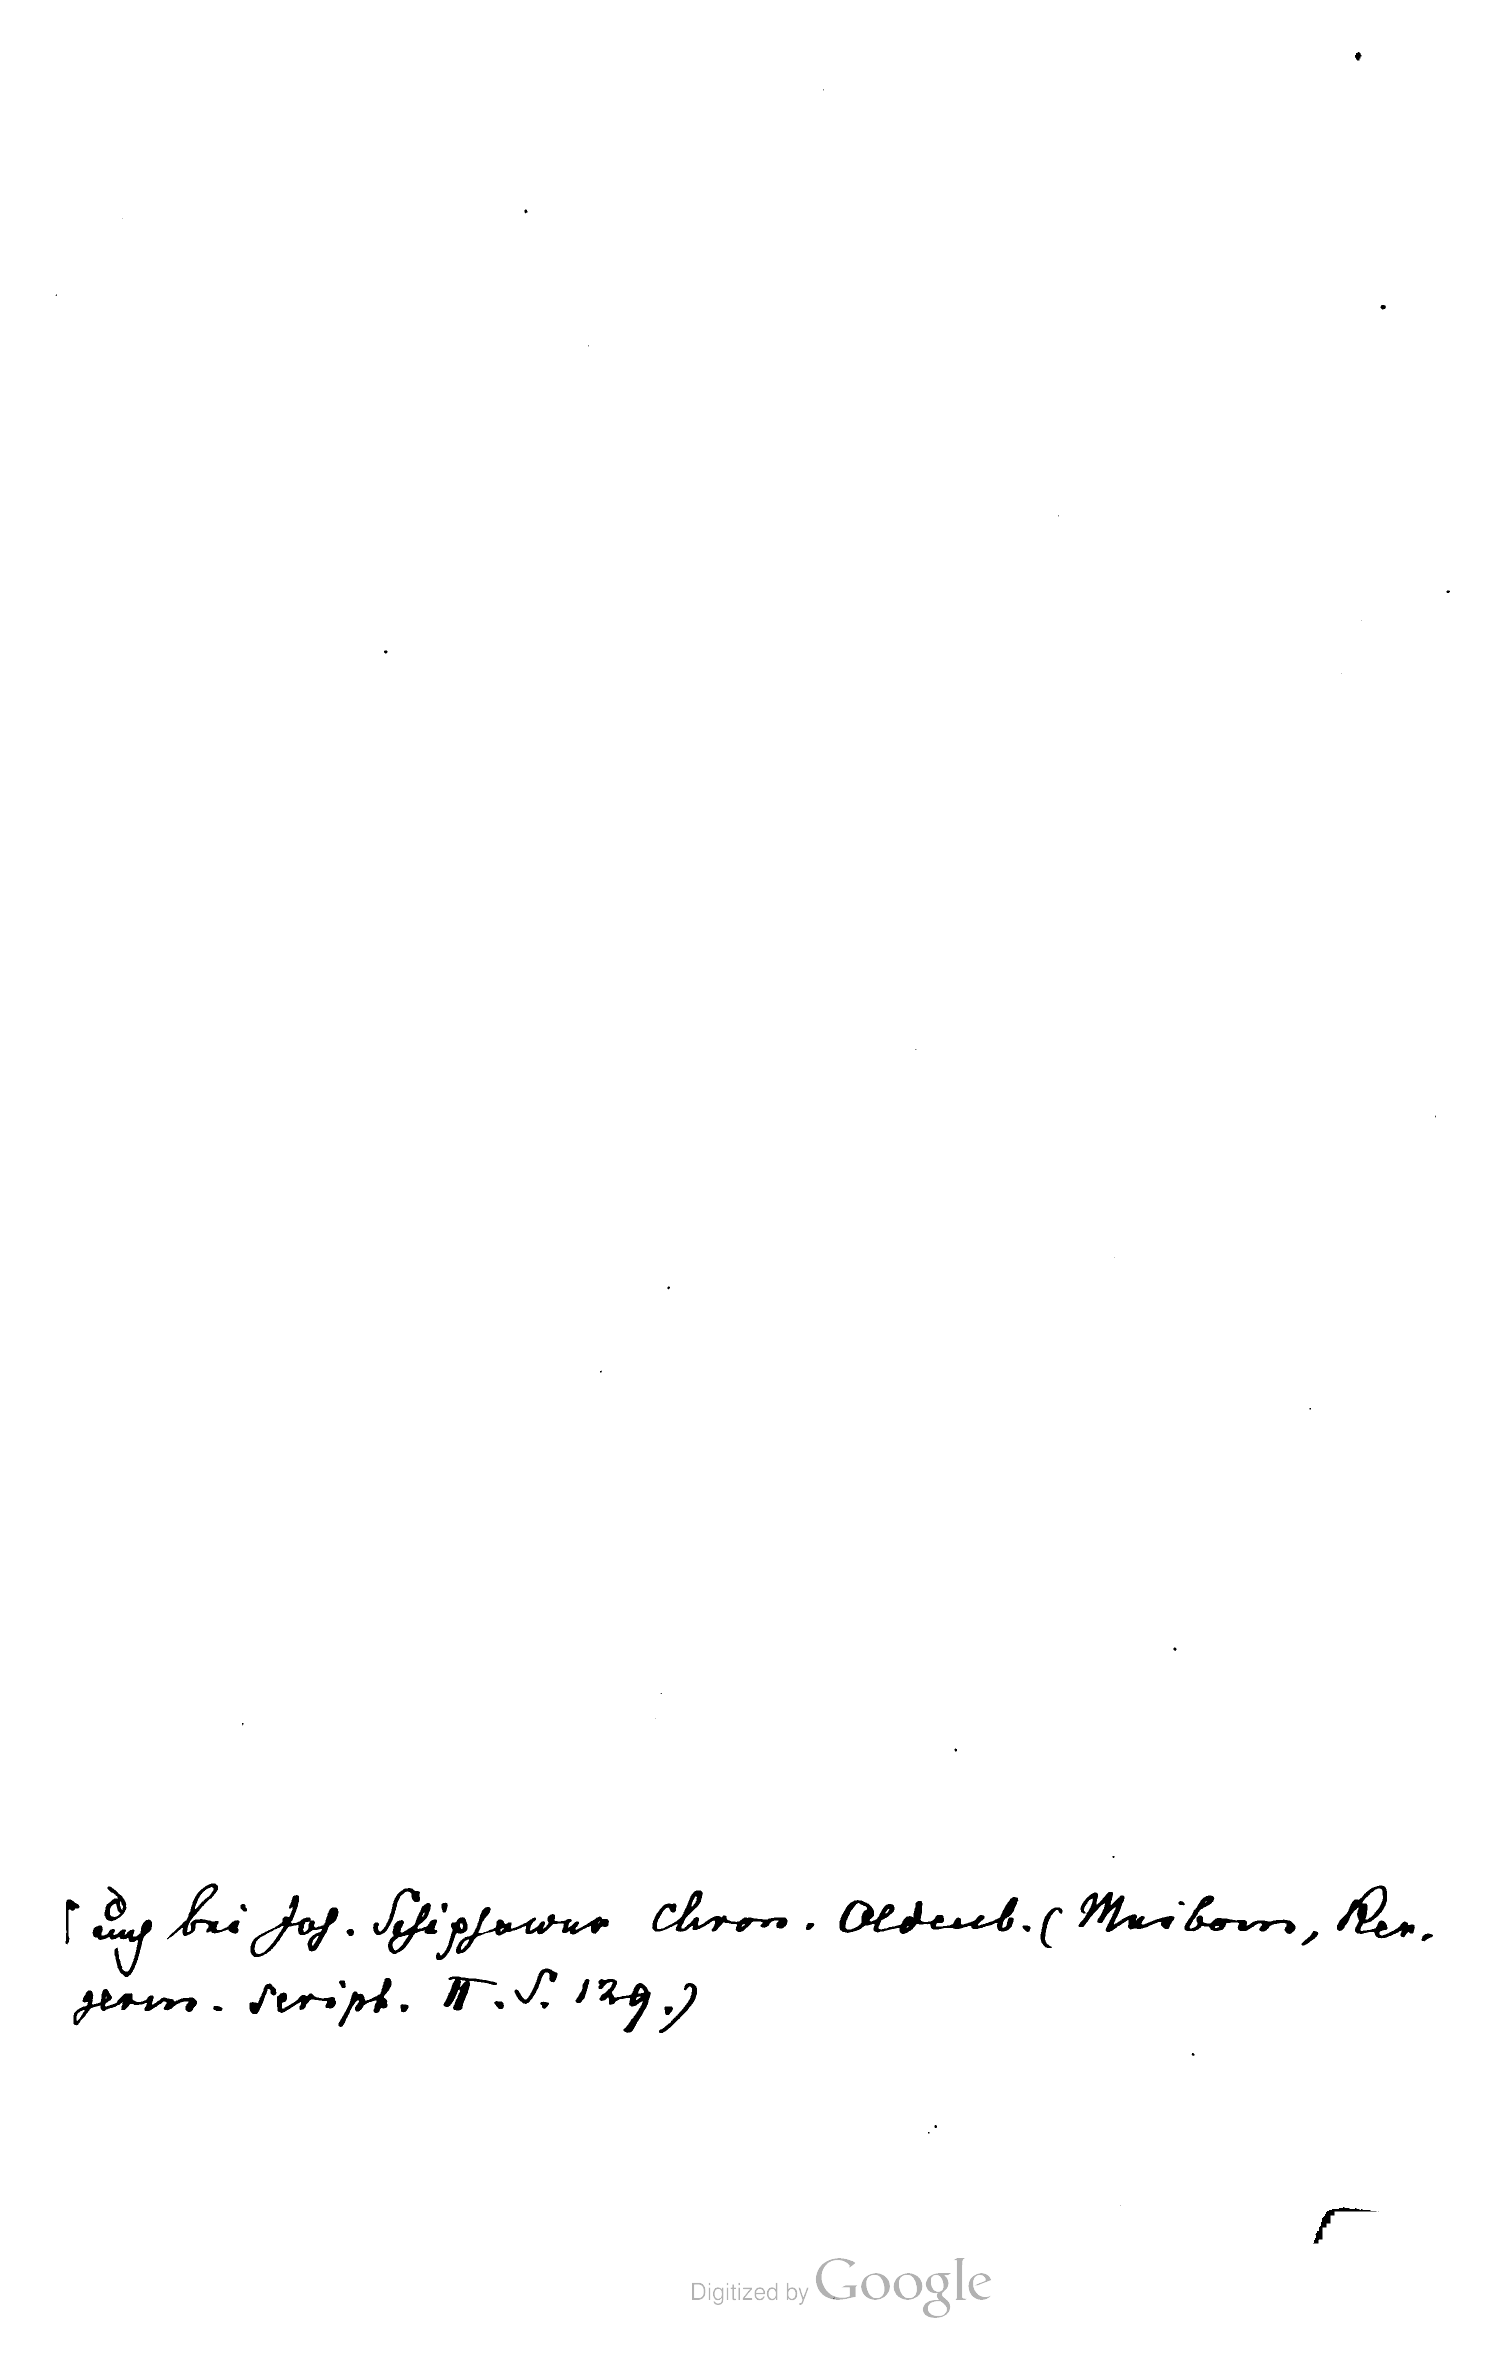 ⌈ auch bei Joh. Schiphower Chron. Oldenb. (Meibom, Rer.
germ. script. II. S. 129.)
Digitized by Google